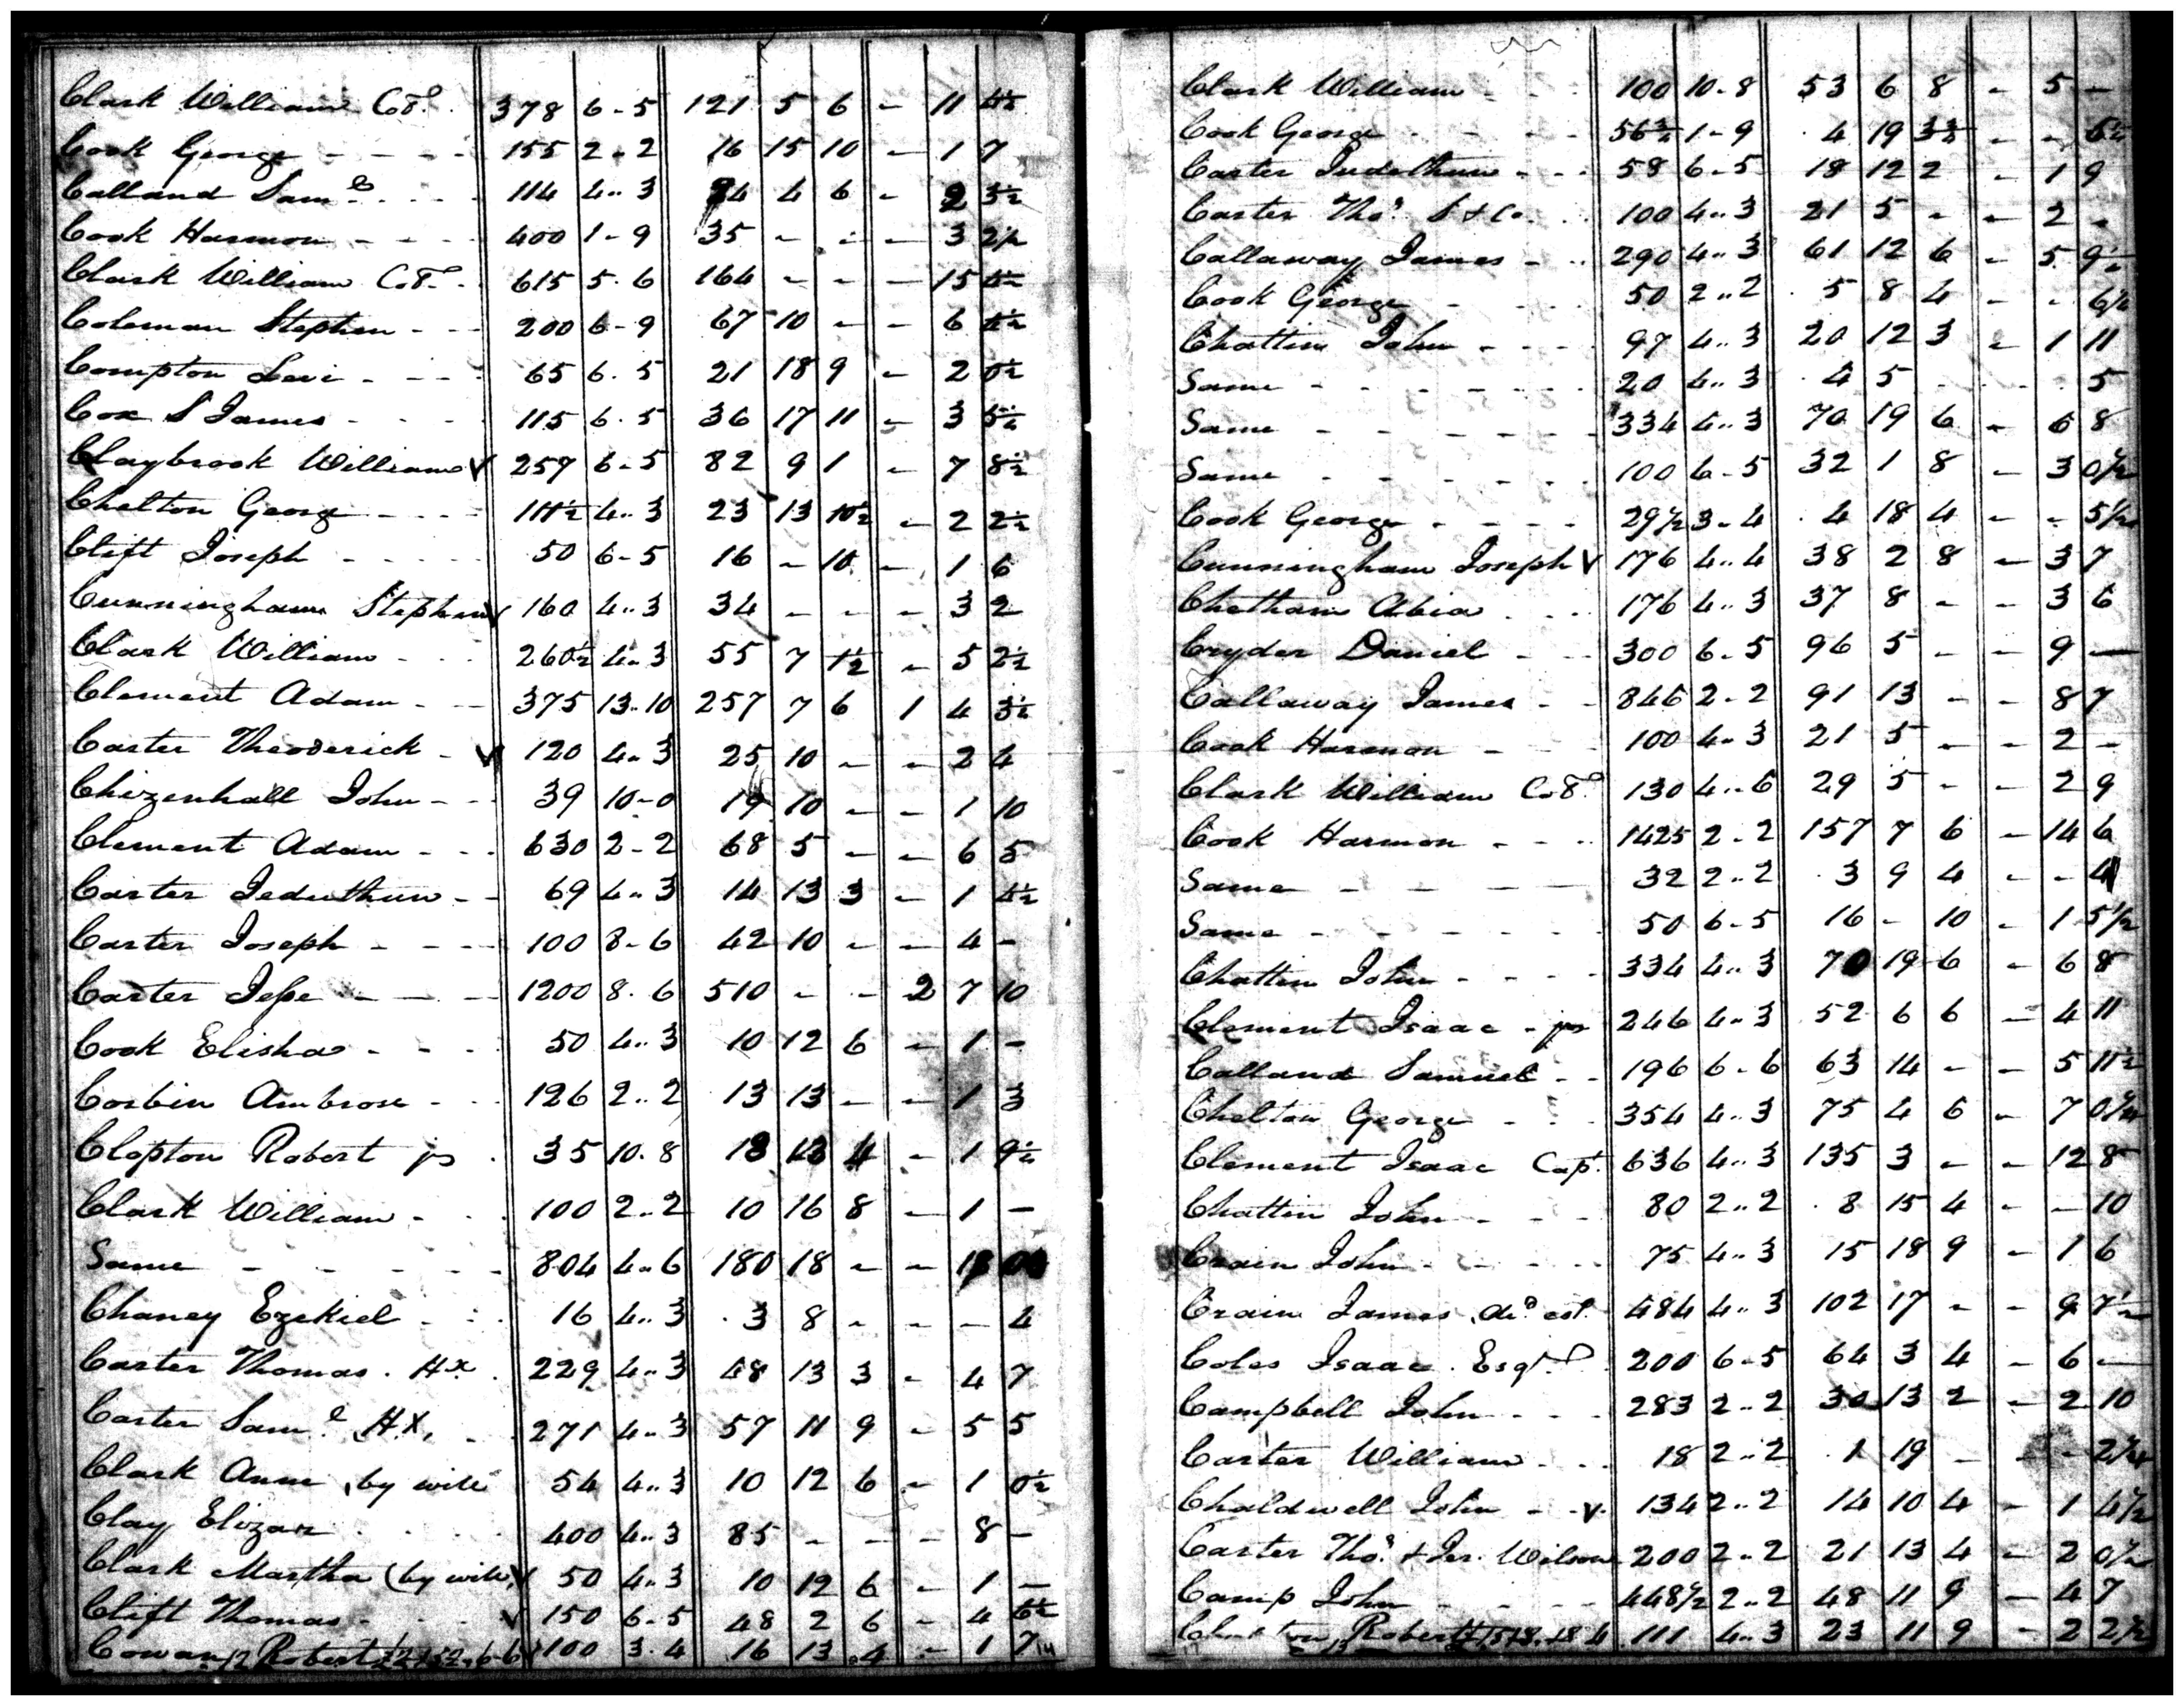 Clark William Col. 378 6-5 121 5 6 - 11 4½
Cook George - - - - 155 2-2 16 15 10 - 1 7
Calland Saml. - - - 114 4..3 24 4 6 - 2 3½
Cook Harmon - - - 400 1-9 35 - - - 3 2½
Clark William Col. - 615 5.6 164 - - - 15 4½
Coleman Stephen - - 200 6-9 67 10 - - 6 4½
Compton Levi - - - 65 6.5 21 18 9 - 2 0½
Cox S James - - - 115 6.5 36 17 11 - 3 5½
Claybrook William V 257 6-5 82 9 1 - 7 8½
Chelton George - - - 111½ 4..3 23 13 10½ - 2 2½
Clift Joseph - - - - 50 6-5 16 - 10 - 1 6
Cunningham Stephen V 160 4..3 34 - - - 3 2
Clark William - - - 260½ 4..3 55 7 1½ - 5 2½
Clement Adam - - 375 13..10 257 7 6 1 4 3½
Carter Theoderick - V 120 4..3 25 10 - - 2 4
Chizenhall John - - 39 10-0 19 10 - - 1 10
Clement Adam - - - 630 2-2 68 5 - - 6 5
Carter Jeduthun - - 69 4..3 14 13 3 - 1 4½
Carter Joseph - - - 100 8-6 42 10 - - 4 -
Carter Jesse - - - 1200 8.6 510 - - 2 7 10
Cook Elisha - - - 50 4..3 10 12 6 - 1 -
Corbin Ambrose - - 126 2..2 13 13 - - 1 3
Clopton Robert jr . 35 10.8 18 13 4 - 1 9½
Clark William - - 100 2..2 10 16 8 - 1 -
Same - - - - - 804 4..6 180 18 - -
Chaney Ezekiel - - - 16 4..3 3 8 - - - 4
Carter Thomas . Hx . 229 4..3 48 13 3 - 4 7
Carter Saml. H.X. - 271 4..3 57 11 9 - 5 5
Clark Anne, by will 54 4..3 10 12 6 - 1 0½
Clay Elizar - - - 400 4..3 85 - - - 8 -
Clark Martha (by will, V 50 4..3 10 12 6 - 1 -
Clift Thomas - - - V 150 6-5 48 2 6 - 4 6½
Cowan Robert 100 3.4 16 13 4 - 1 7
Clark William - - - 100 10.8 53 6 8 - 5 -
Cook George - - - - 56¾ 1-9 4 19 3¾ - - 6½
Carter Judethun - - - 58 6-5 18 12 2 - 1 9
Carter Thos. & Co. - 100 4..3 21 5 - - 2 -
Callaway James - - 290 4..3 61 12 6 - 5 9½
Cook George - - - 50 2..2 5 8 4 - - 6½
Chattin John - - - - 97 4..3 20 12 3 - 1 11
Same - - - - - - 20 4..3 4 5 - - - 5
Same - - - - - - 334 4..3 70 19 6 - 6 8
Same - - - - - - 100 6-5 32 1 8 - 3 0½
Cook George - - - - 29½ 3-4 4 18 4 - - 5½
Cunningham Joseph V 176 4..4 38 2 8 - 3 7
Chetham Abia - - - 176 4..3 37 8 - - 3 6
Cryder Daniel - - - 300 6-5 96 5 - - 9 -
Callaway James - - 846 2-2 91 13 - - 8 7
Cook Harmon - - - 100 4..3 21 5 - - 2 -
Clark William Col. 130 4..6 29 5 - - 2 9
Cook Harmon - - - 1425 2-2 157 7 6 - 14 6
Same - - - - 32 2..2 3 9 4 - - 4
Same - - - - - - 50 6-5 16 - 10 - 1 5½
Chattin John - - - - 334 4..3 70 19 6 - 6 8
Clement Isaac - jr 246 4..3 52 6 6 - 4 11
Calland Samuel - - 196 6-6 63 14 - - 5 11½
Chelton George - - - 354 4..3 75 4 6 - 7 0½
Clement Isaac Capt. 636 4..3 135 3 - - 12 8
Chattin John - - - 80 2..2 8 15 4 - - 10
Crain John - - - - 75 4..3 15 18 9 - 1 6
Crain James, decd. est. 484 4..3 102 17 - - 9 7½
Coles Isaac . Esqr. 200 6-5 64 3 4 - 6 -
Campbell John - - - 283 2..2 30 13 2 - 2 10
Carter William - - - 18 2..2 1 19 - - - 2¼
Chaldwell John - - V. 134 2..2 14 10 4 - 1 4½
Carter Thos. & Jer. Wilson 200 2..2 21 13 4 - 2 0½
Camp John - - - - 448½ 2..2 48 11 9 - 4 7
Robert 111 4..3 23 11 9 - 2 2½